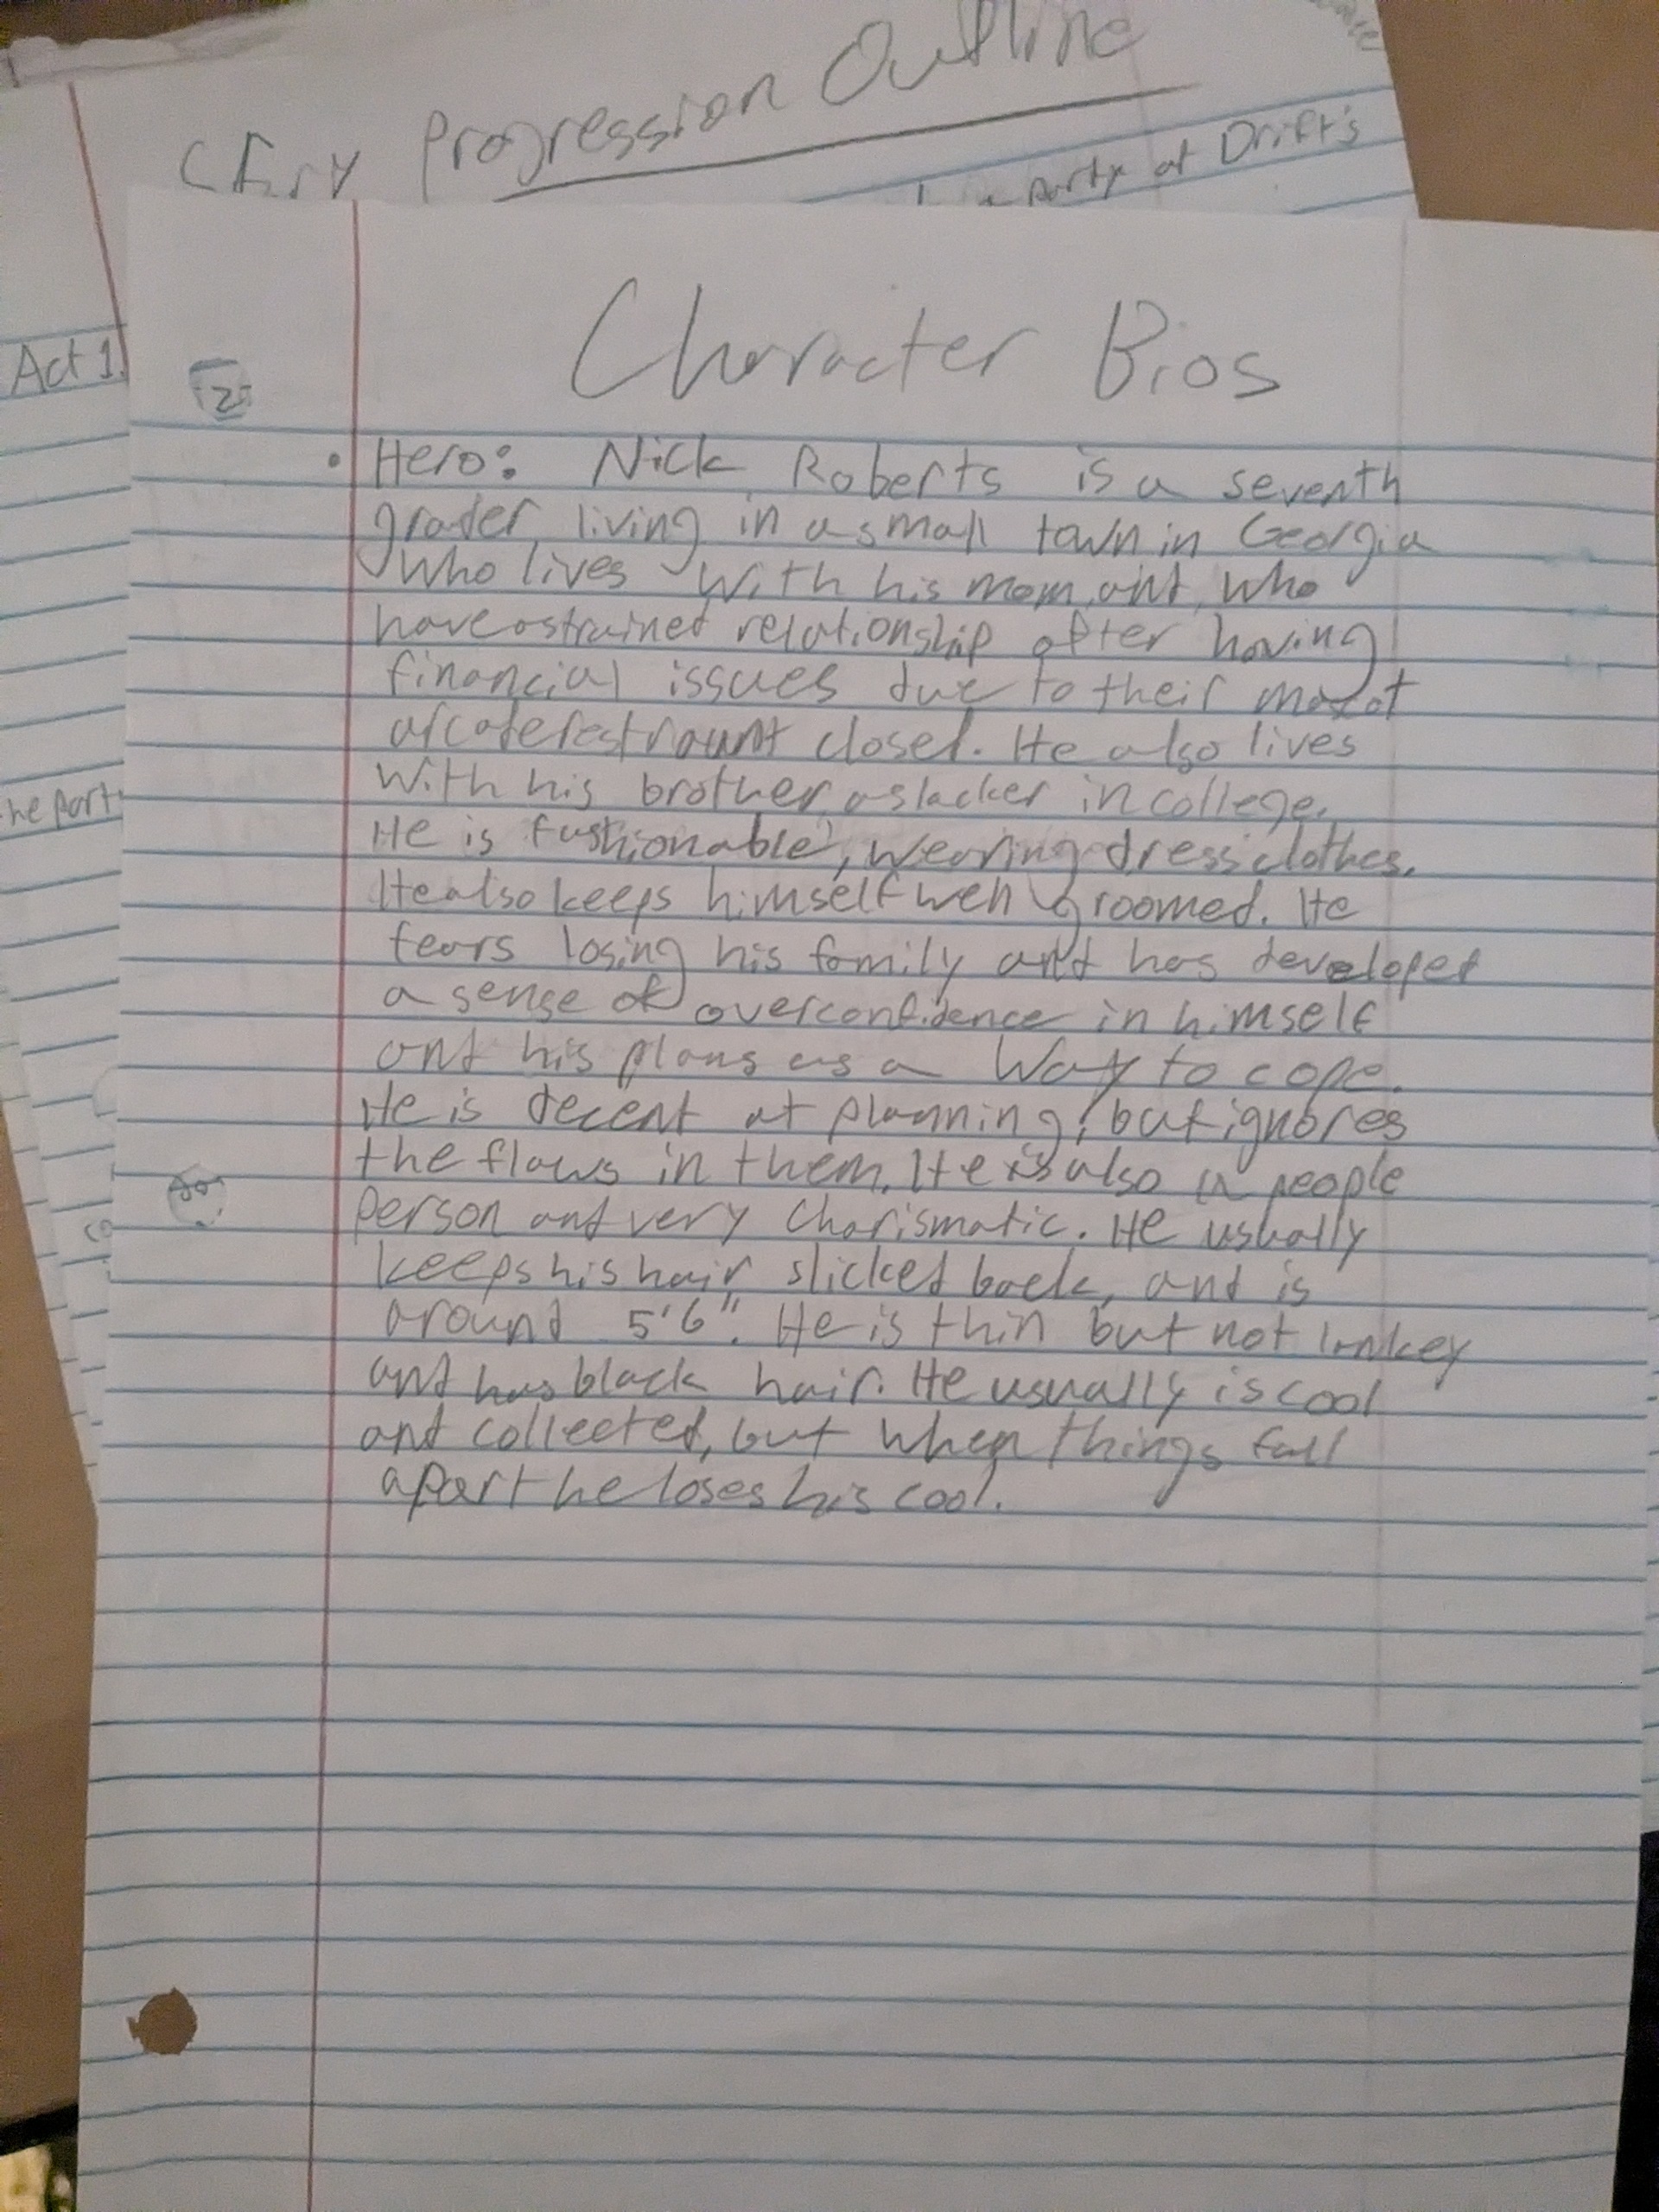 Progression Outline
party at Drift's
Act 1.
he part
Character Bios
• Hero: Nick Roberts is a seventh
grader living in a small town in Georgia
who lives with his mom and who
have a strained relationship after having
financial issues due to their
closed. He also lives
with his brother, a slacker in college.
He is fashionable, wearing dress clothes.
He also keeps himself well groomed. He
fears losing his family and has developed
a sense of overconfidence in himself
and his plans as a way to cope.
He is decent at planning, but ignores
the flaws in them. He is also a people
person and very charismatic. He usually
keeps his hair slicked back, and is
around 5'6". He is thin but not lankey
and has black hair. He usually is cool
and collected, but when things fall
apart he loses his cool.